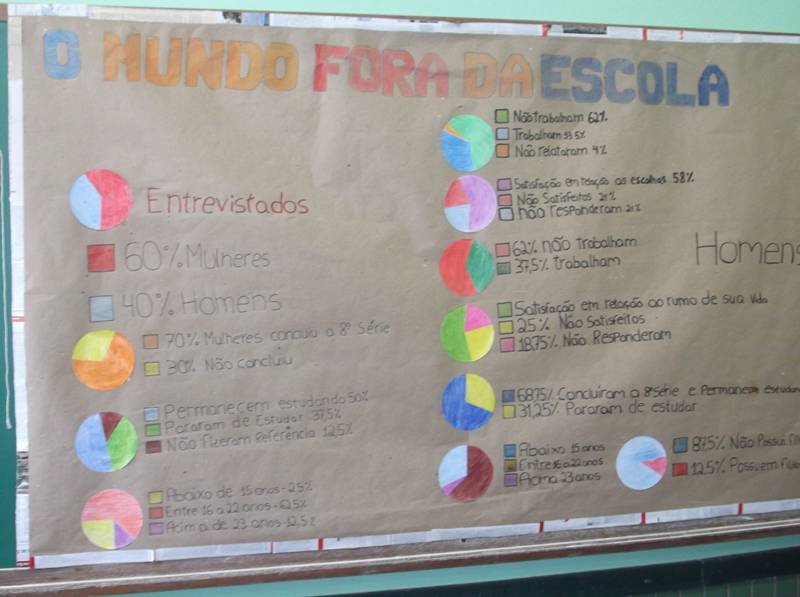 O MUNDO FORA DA ESCOLA
Entrevistados
60% Mulheres
40% Homens
70% Mulheres concluiu a 8ª Série
30% Não concluiu
Permanecem estudando 50%
Pararam de Estudar 37,5%
Não fizeram Referência 12,5%
Abaixo de 15 anos - 25%
Entre 16 a 22 anos - 62,5%
Acima de 23 anos - 12,5%
Não trabalham 62%
Trabalham 33,5%
Não relataram 4%
Satisfação em relação as escolhas 58%
Não Satisfeitos 21%
não responderam 21%
62% não trabalham
37,5% trabalham
Homens
Satisfação em relação ao rumo de sua vida
25% Não Satisfeitos
18,75% Não Responderam
68,75% Concluíram a 8ª série e Permanecem
31,25% Pararam de estudar
Abaixo 15 anos
Entre 16 a 22 anos
Acima 23 anos
87,5% Não Possui
12,5% Possuem